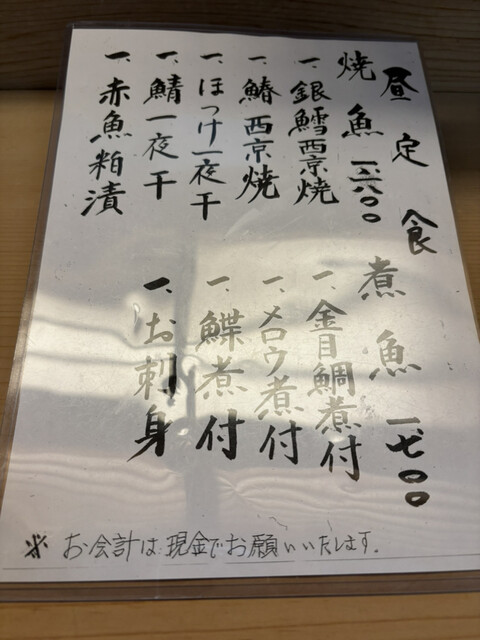 昼定食
焼魚 一、六〇〇
一、銀鱈西京焼
一、鰆西京焼
一、ほっけ一夜干
一、鯖一夜干
一、赤魚粕漬
煮魚 一、七〇〇
一、金目鯛煮付
一、メロウ煮付
一、鰈煮付
一、お刺身
※ お会計は現金でお願いいたします。